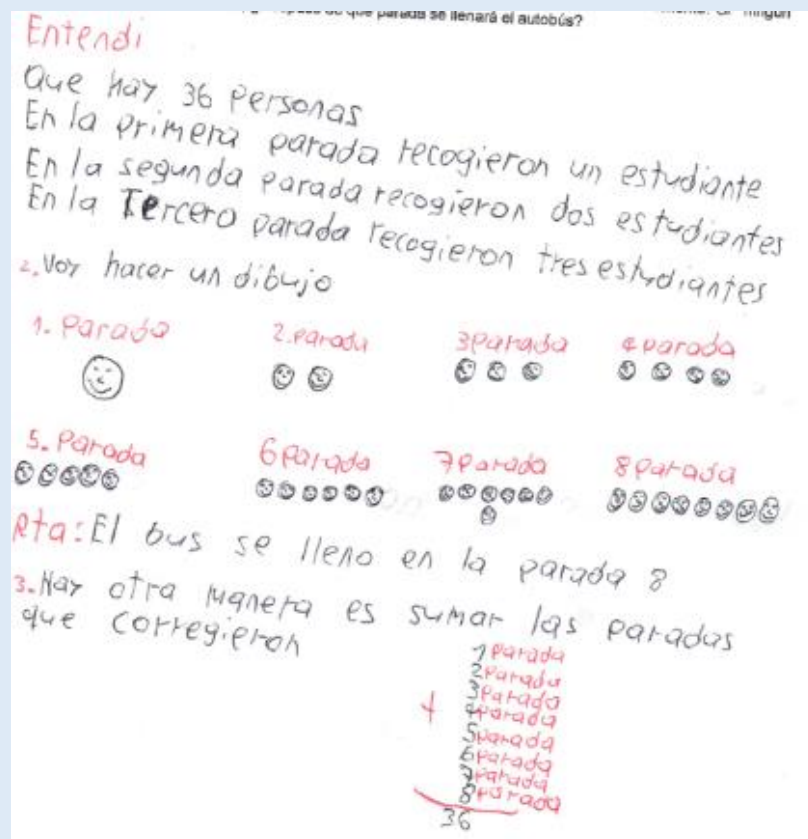 de que parada se llenará el autobús?
Entendi
Que hay 36 Personas
En la Primera parada recogieron un estudiante
En la segunda parada recogieron dos estudiantes
En la Tercero parada recogieron tres estudiantes
2. Voy hacer un dibujo
1. Parada 2. parada 3 parada 4 parada
5. Parada 6 Parada 7 Parada 8 parada
Rta: El bus se lleno en la parada 8
3. Hay otra manera es sumar las paradas
que corregieron
1 parada
2 parada
3 parada
+ 4 parada
5 parada
6 parada
7 parada
8 parada
36